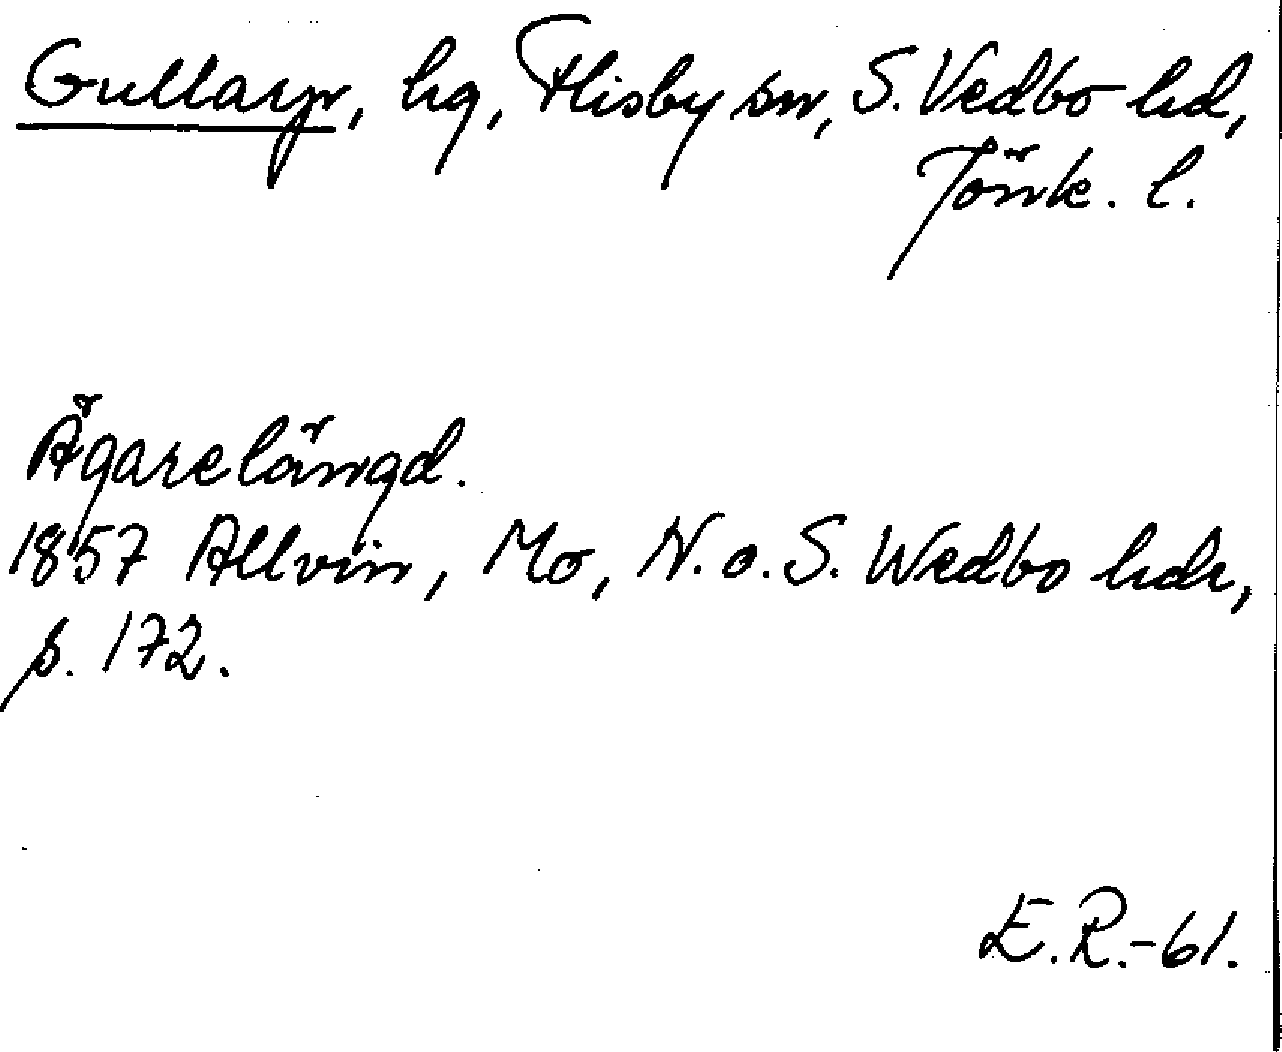 Gullarp, hg, Flisby sn, S. Vedbo hd,
Jönk. l.
Ägarelängd.
1857 Allvin, Mo, N. o. S. Wedbo hdr,
s. 172.
E.R.-61.